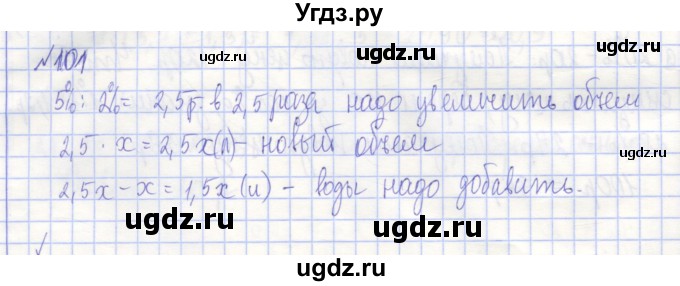 Угдз.ру
№101
ugdz.ru
ugdz.ru
5% : 2% = 2,5р. в 2,5 раза надо увеличить объем
2,5 · x = 2,5x(л) - новый объем
ugdz.ru
2,5x - x = 1,5x (л) - воды надо добавить.
ugdz.ru
ugdz.ru
ugdz.ru
ugdz.ru